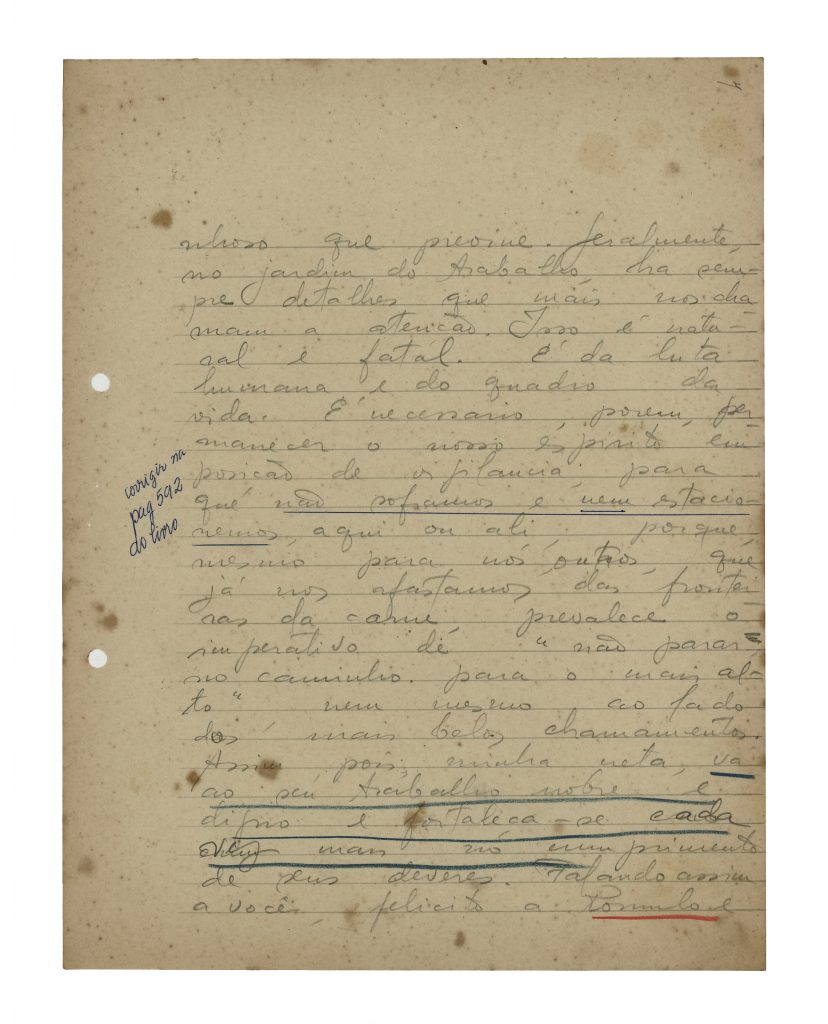 nhoso que previne. Geralmente,
no jardim do trabalho, ha sem-
pre detalhes que mais nos cha
mam a atenção. Isso é natu-
ral e fatál. É da luta
humana e do quadro da
vida. É necessario, porem, per
manecer o nosso espirito em
posição de vigilancia, para
que não soframos e nem estacio-
nemos, aqui ou ali, porque,
mesmo para nós outros, que
já nos afastamos das frontei
ras da carne prevalece o
imperativo de "não parar
no caminho para o mais al-
to" nem mesmo ao lado
dos mais belos chamamentos.
Assim pois, minha neta, va
ao seu trabalho nobre e
digno e fortaleca-se cada
vez mais no cumprimento
de seus deveres. Falando assim
a você, felicito a Romulo e
corrigir na
pag 592
do livro